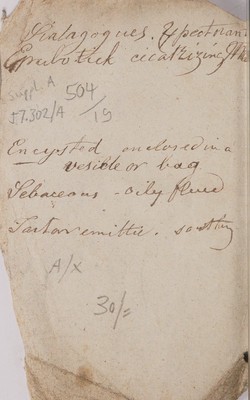 Sialagogues. Expectoran
Epulotick cicatrizing
Suppl. A
504
57.302/A
/19
Encysted enclosed in a
vesicle or bag
Sebaceous - oily fluid
Tartar emittic.
A/x
30/=